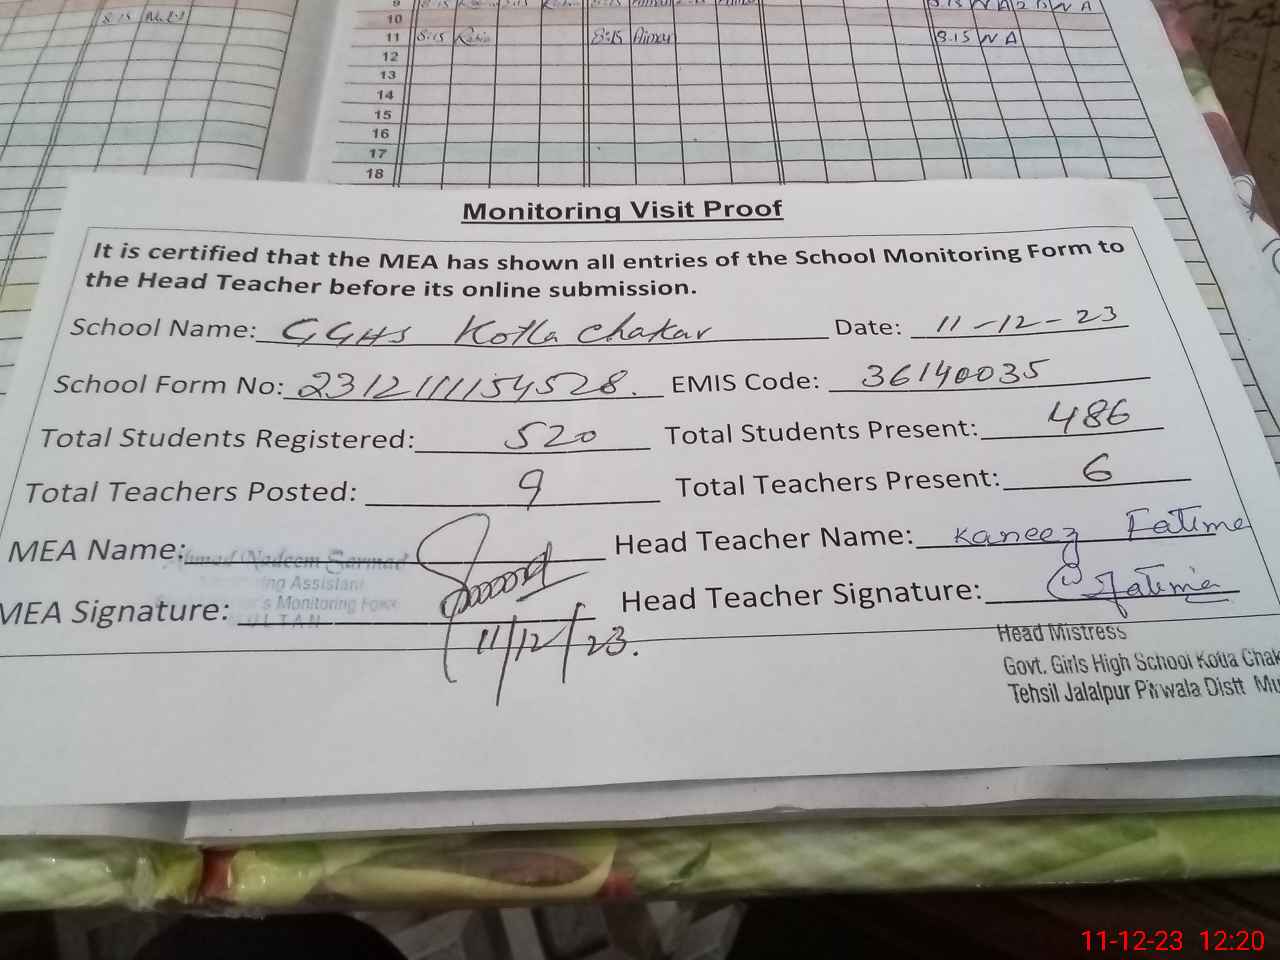 8:15
9
10
11 8:15 Rabia 8:15 Aiman 8.15 N A
12
13
14
15
16
17
18
Monitoring Visit Proof
It is certified that the MEA has shown all entries of the School Monitoring Form to
the Head Teacher before its online submission.
School Name: GGHS Kotla Chakar Date: 11-12-23
School Form No: 2312111154528. EMIS Code: 36140035
Total Students Registered: 520 Total Students Present: 486
Total Teachers Posted: 9 Total Teachers Present: 6
MEA Name: Ahmad Nadeem Sarmad Head Teacher Name: Kaneez Fatima
Monitoring Assistant
MEA Signature: Monitoring Force Head Teacher Signature: Fatima
MULTAN
11/12/23.
Head Mistress
Govt. Girls High School Kotla Chak
Tehsil Jalalpur Pirwala Distt Mu
11-12-23 12:20